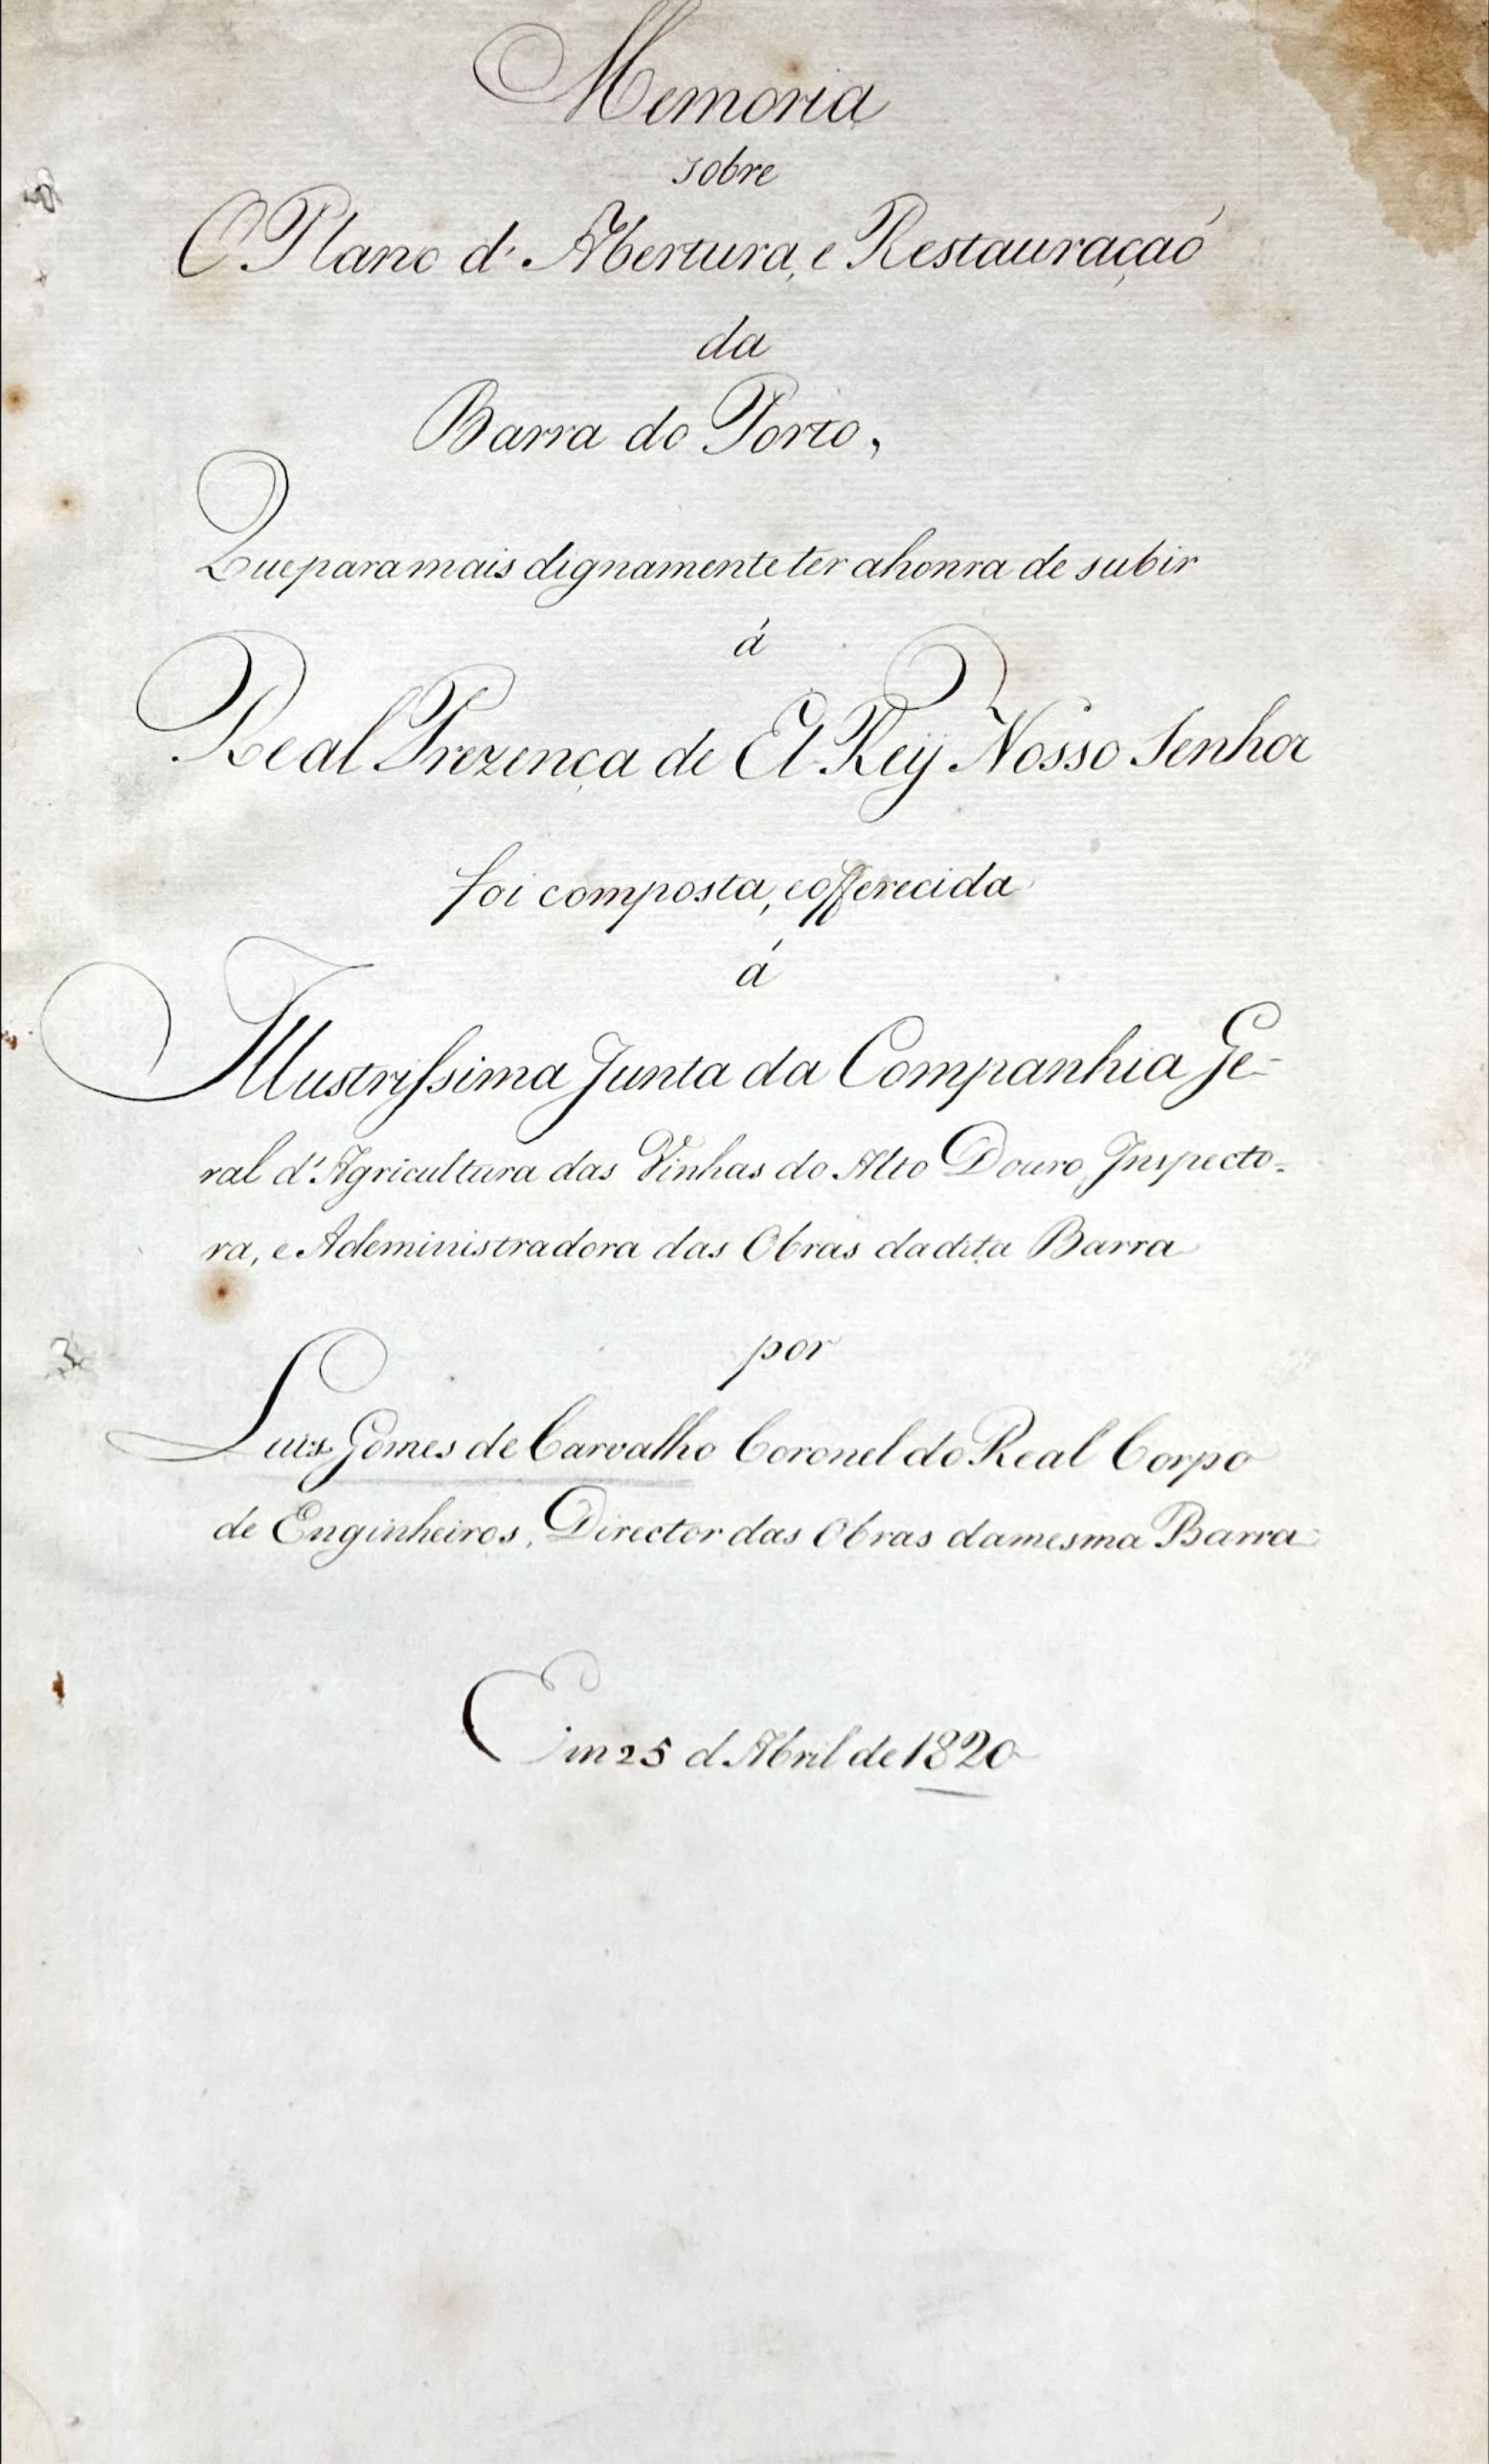 Memoria
sobre
O Plano d' Abertura, e Restauraçaó
da
Barra do Porto,
Que para mais dignamente ter a honra de subir
á
Real Prezença de El Rey Nosso Senhor
foi composta, e offerecida
á
Illustrissima Junta da Companhia Ge-
ral d' Agricultura das Vinhas do Alto Douro, Inspecto-
ra, e Adeministradora das Obras da dita Barra
por
Luis Gomes de Carvalho Coronel do Real Corpo
de Enginheiros, Director das Obras da mesma Barra
Em 25 d'Abril de 1820